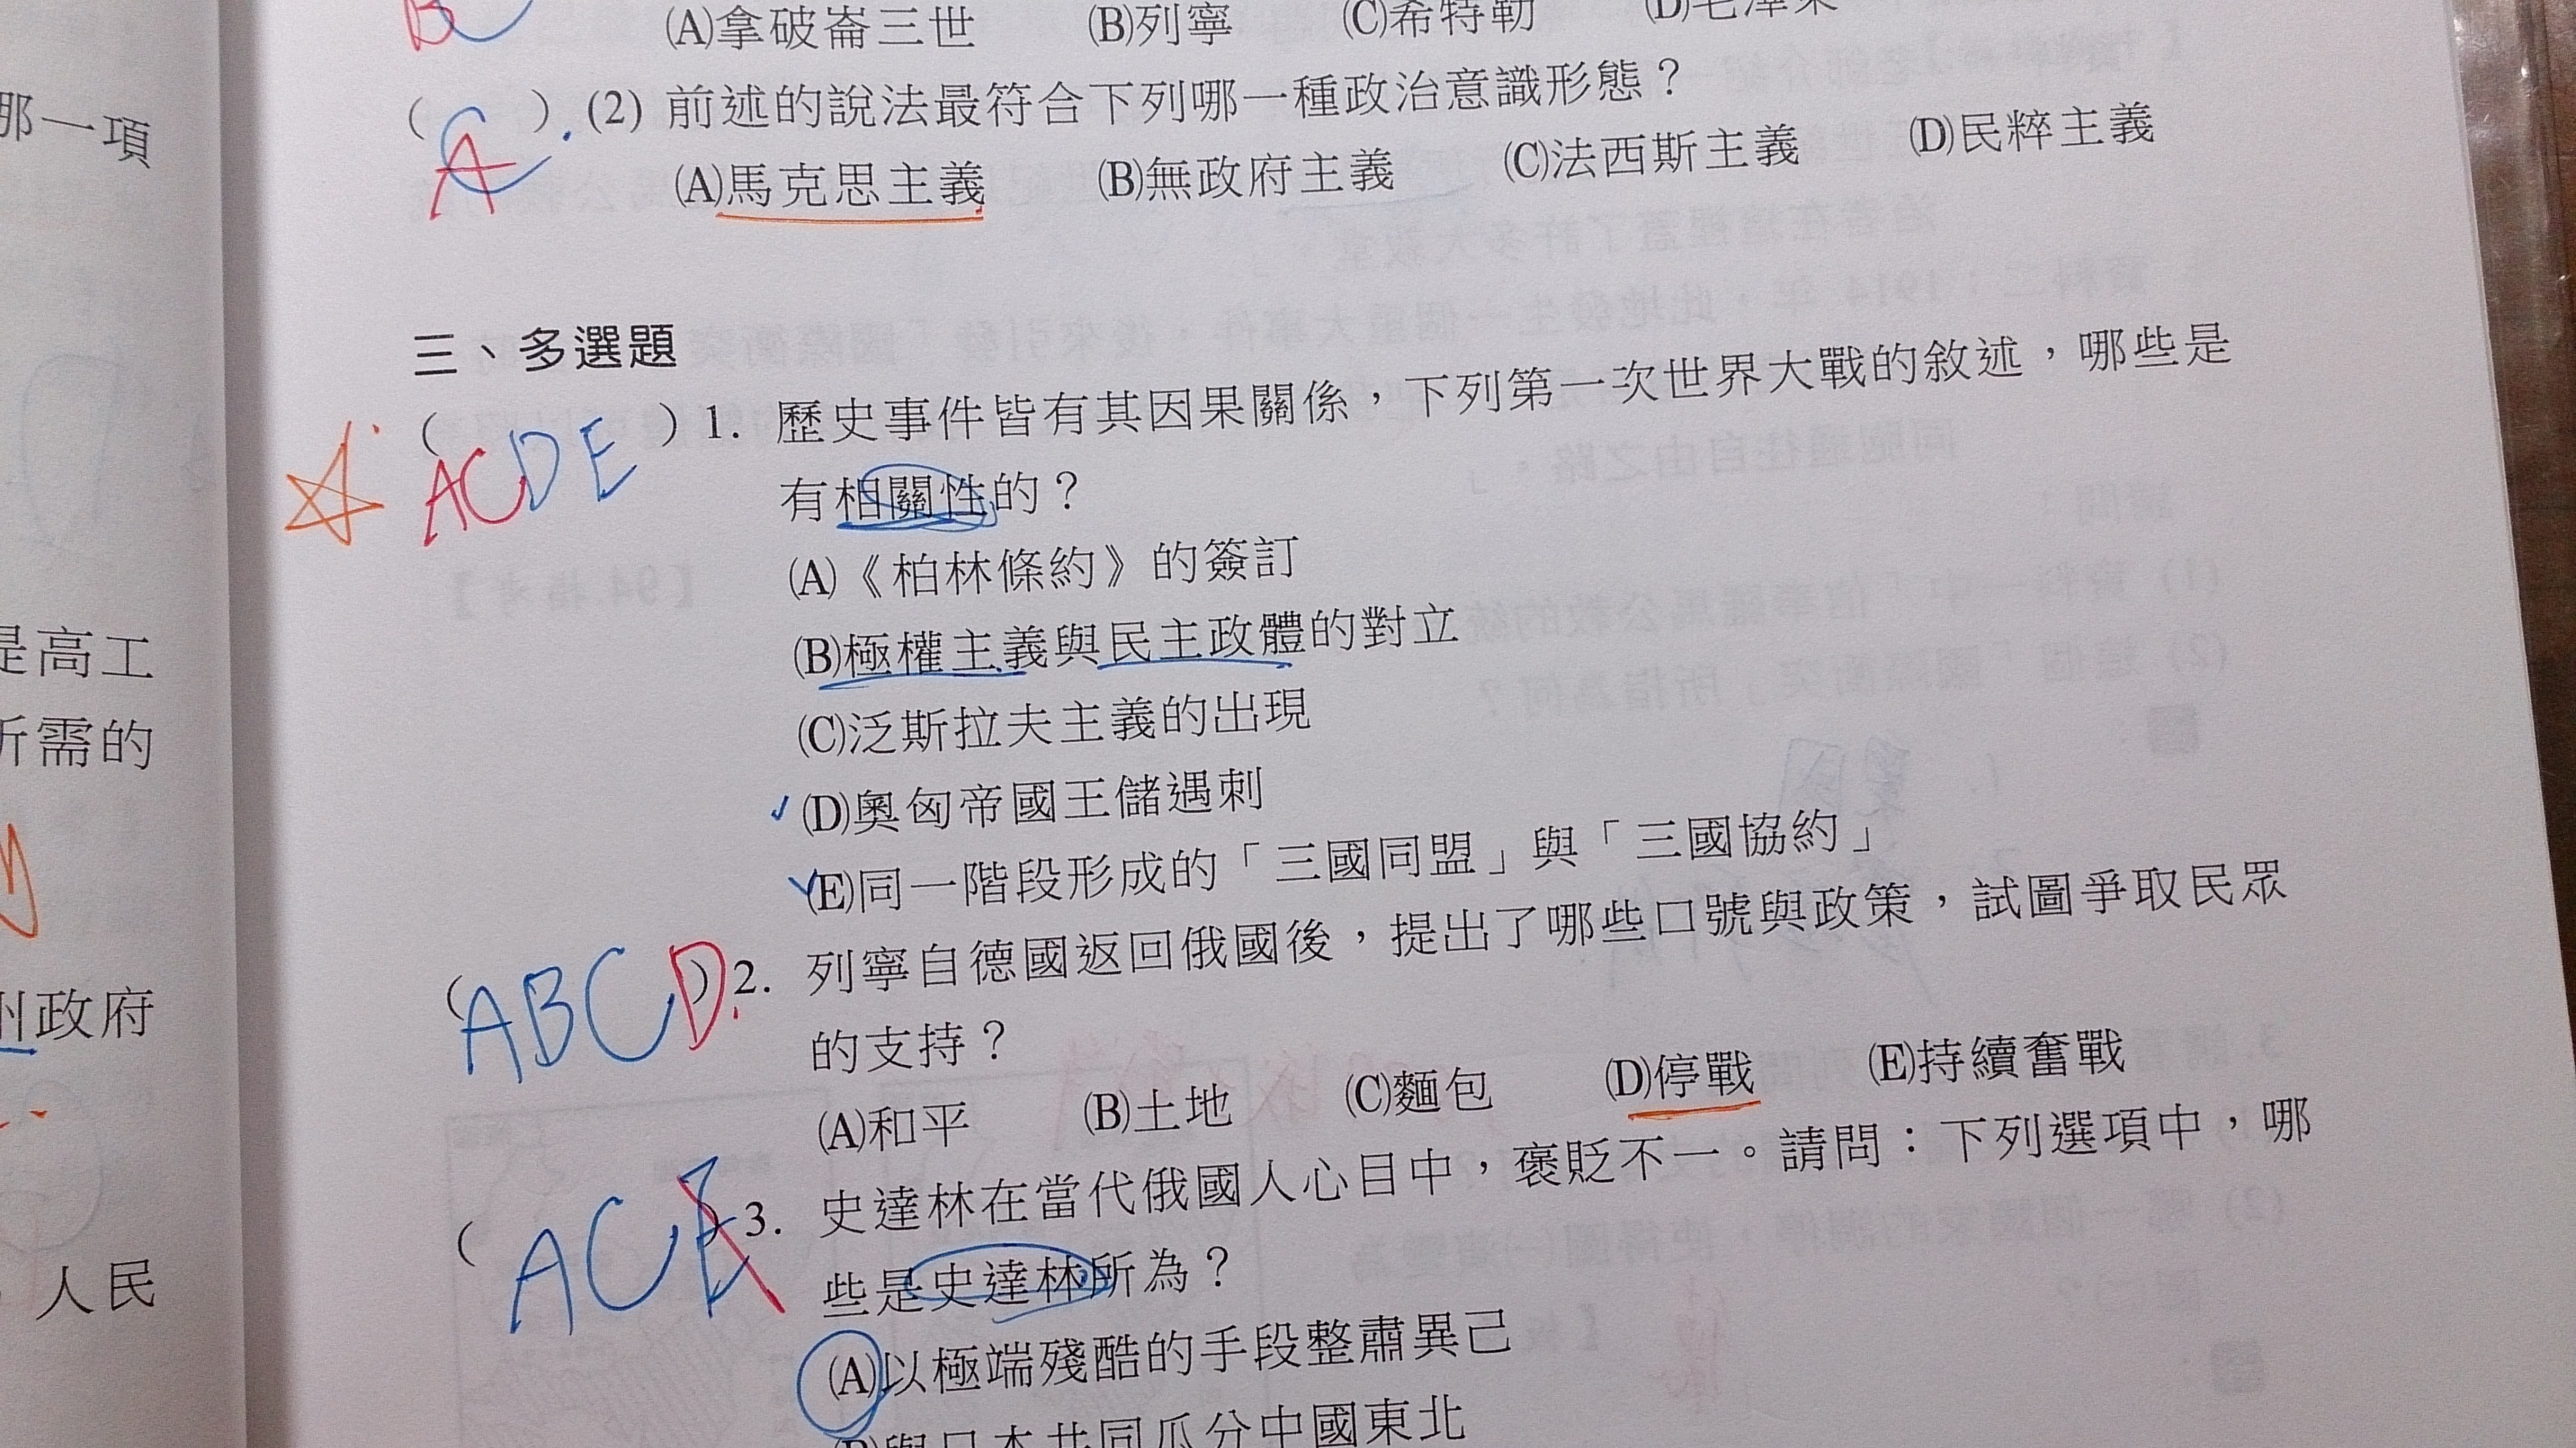 (A)拿破崙三世 (B)列寧 (C)希特勒 (D)毛澤東
那一項
A
( ) (2) 前述的說法最符合下列哪一種政治意識形態？
(A)馬克思主義 (B)無政府主義 (C)法西斯主義 (D)民粹主義
三、多選題
(ACDE) 1. 歷史事件皆有其因果關係，下列第一次世界大戰的敘述，哪些是
有相關性的？
(A)《柏林條約》的簽訂
(B)極權主義與民主政體的對立
是高工
(C)泛斯拉夫主義的出現
所需的
(D)奧匈帝國王儲遇刺
(E)同一階段形成的「三國同盟」與「三國協約」
(ABCD) 2. 列寧自德國返回俄國後，提出了哪些口號與政策，試圖爭取民眾
政府
的支持？
(A)和平 (B)土地 (C)麵包 (D)停戰 (E)持續奮戰
(ACE 3. 史達林在當代俄國人心目中，褒貶不一。請問：下列選項中，哪
人民
些是史達林所為？
(A)以極端殘酷的手段整肅異己
(B)與日本共同瓜分中國東北